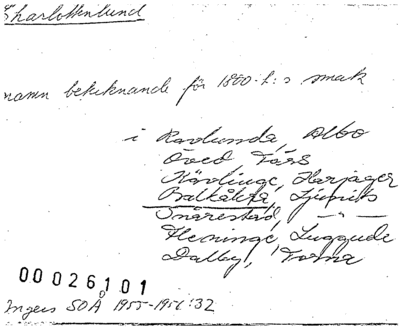 Charlottenlund
namn betecknande för 1800-t:s smak
i Ravlunda, Albo
Öved, Färs
Kävlinge, Harjager
Balkåkra, Ljunits
Snårestad, — " —
Fleninge, Luggude
Dalby, Torna
00026101
Ingers SOÅ 1955-1956:32